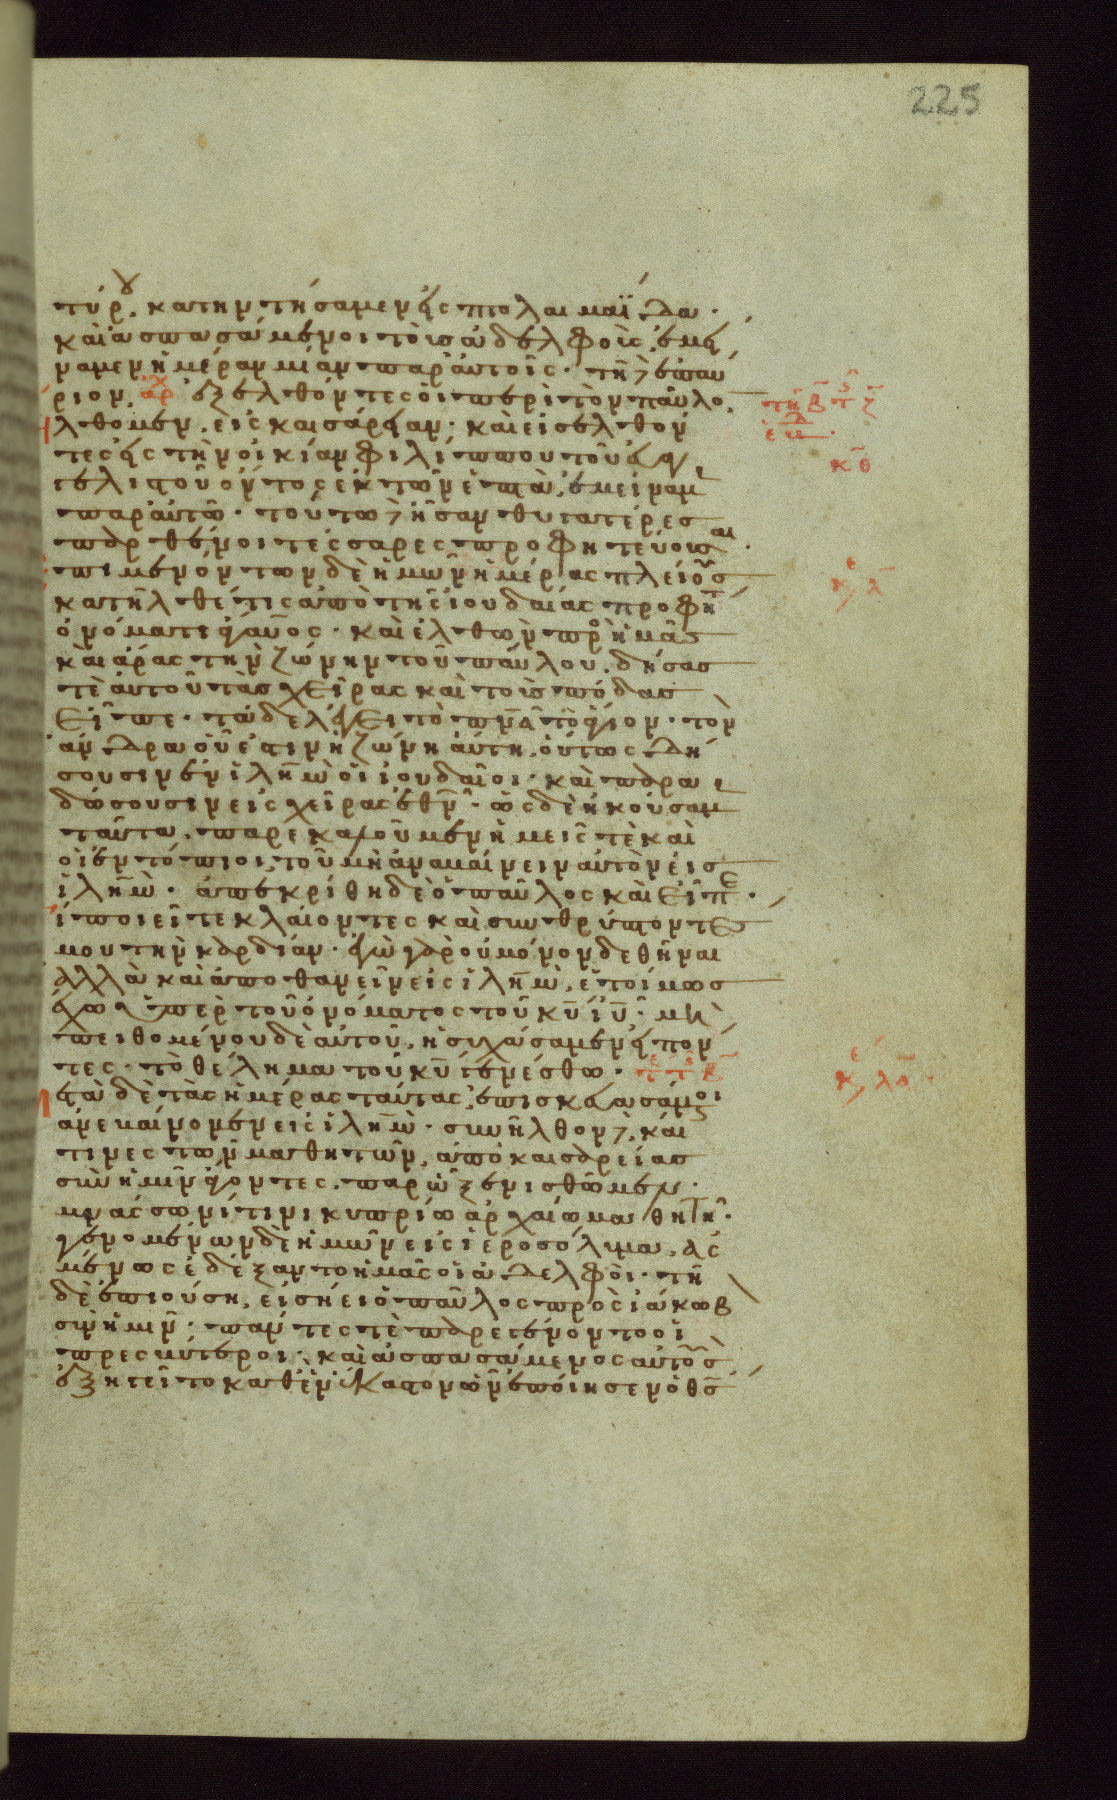 225
τύρου κατηντήσαμεν εἰς πτολαιμαΐδα·
καὶ ἀσπασάμενοι τοὺς ἀδελφοὺς, ἐμεί
ναμεν ἡμέραν μίαν παρ' αὐτοῖς· τῇ δὲ ἐπαύ
ριον, ἐξελθόντες οἱ περὶ τὸν παῦλον,
λθομεν, εἰς καισάρειαν· καὶ εἰσελθόν
τες εἰς τὴν οἰκίαν φιλίππου τοῦ εὐαγ
γελιστοῦ ὄντος ἐκ τῶν ἑπτὰ, ἐμείναμεν
παρ' αὐτῷ· τούτω δὲ ἦσαν θυγατέρες
παρθένοι τέσσαρες προφητεύουσαι·
πιμενόντων δὲ ἡμῶν ἡμέρας πλείους
κατῆλθέ τις ἀπὸ τῆς ἰουδαίας προφήτης
ὀνόματι ἄγαβος· καὶ ἐλθὼν πρὸς ἡμᾶς
καὶ ἄρας τὴν ζώνην τοῦ παύλου, δήσας
τὲ αὐτοῦ τὰς χεῖρας καὶ τοὺς πόδας
εἶπε· τάδε λέγει τὸ πνα τὸ ἅγιον· τὸν
ἄνδρα οὗ ἐστιν ἡ ζώνη αὕτη, οὕτως δή
σουσιν ἐν ἱλημ οἱ ἰουδαῖοι· καὶ παρα
δώσουσιν εἰς χεῖρας ἐθνῶν· ὡς δὲ ἠκούσαμεν
ταῦτα, παρεκαλοῦμεν ἡμεῖς τὲ καὶ
οἱ ἐντόπιοι, τοῦ μὴ ἀναμαίνειν αὐτὸν εἰς
ἱλημ· ἀπεκρίθη δὲ ὁ παῦλος καὶ εἶπε·
ί ποιεῖτε κλαίοντες καὶ συνθρύπτοντες
μου τὴν καρδίαν· ἐγὼ γὰρ οὐ μόνον δεθῆναι
ἀλλὰ καὶ ἀποθανεῖν εἰς ἱλημ, ἑτοίμως
ἔχω ὑπὲρ τοῦ ὀνόματος τοῦ κυ ιυ· μὴ
πειθομένου δὲ αὐτοῦ, ἡσυχάσαμεν εἰπόν
τες· τὸ θέλημα τοῦ κυ γενέσθω·
ετὰ δὲ τὰς ἡμέρας ταύτας, ἐπισκευασάμενοι
ἀνεβαίνομεν εἰς ἱλημ· συνῆλθον δὲ, καί
τινες τῶν μαθητῶν, ἀπὸ καισαρείας
σὺν ἡμῖν ἄγοντες, παρ' ᾧ ξενισθῶμεν·
μνάσωνί τινι κυπρίω ἀρχαίω μαθητῇ·
γενομένων δὲ ἡμῶν εἰς ἱεροσόλυμα, ἀσ
μένως ἐδέξαντο ἡμᾶς οἱ ἀδελφοί· τῇ
δὲ ἐπιούση, εἰσήει ὁ παῦλος πρὸς ἰάκωβον
σὺν ἡμῖν· πάντες τὲ παρεγένοντο οἱ
πρεσβύτεροι· καὶ ἀσπασάμενος αὐτοὺς
ἐξηγεῖτο καθ' ἓν ἕκαστον ὧν ἐποίησεν ὁ θς
κθ
κε λ
κε λα